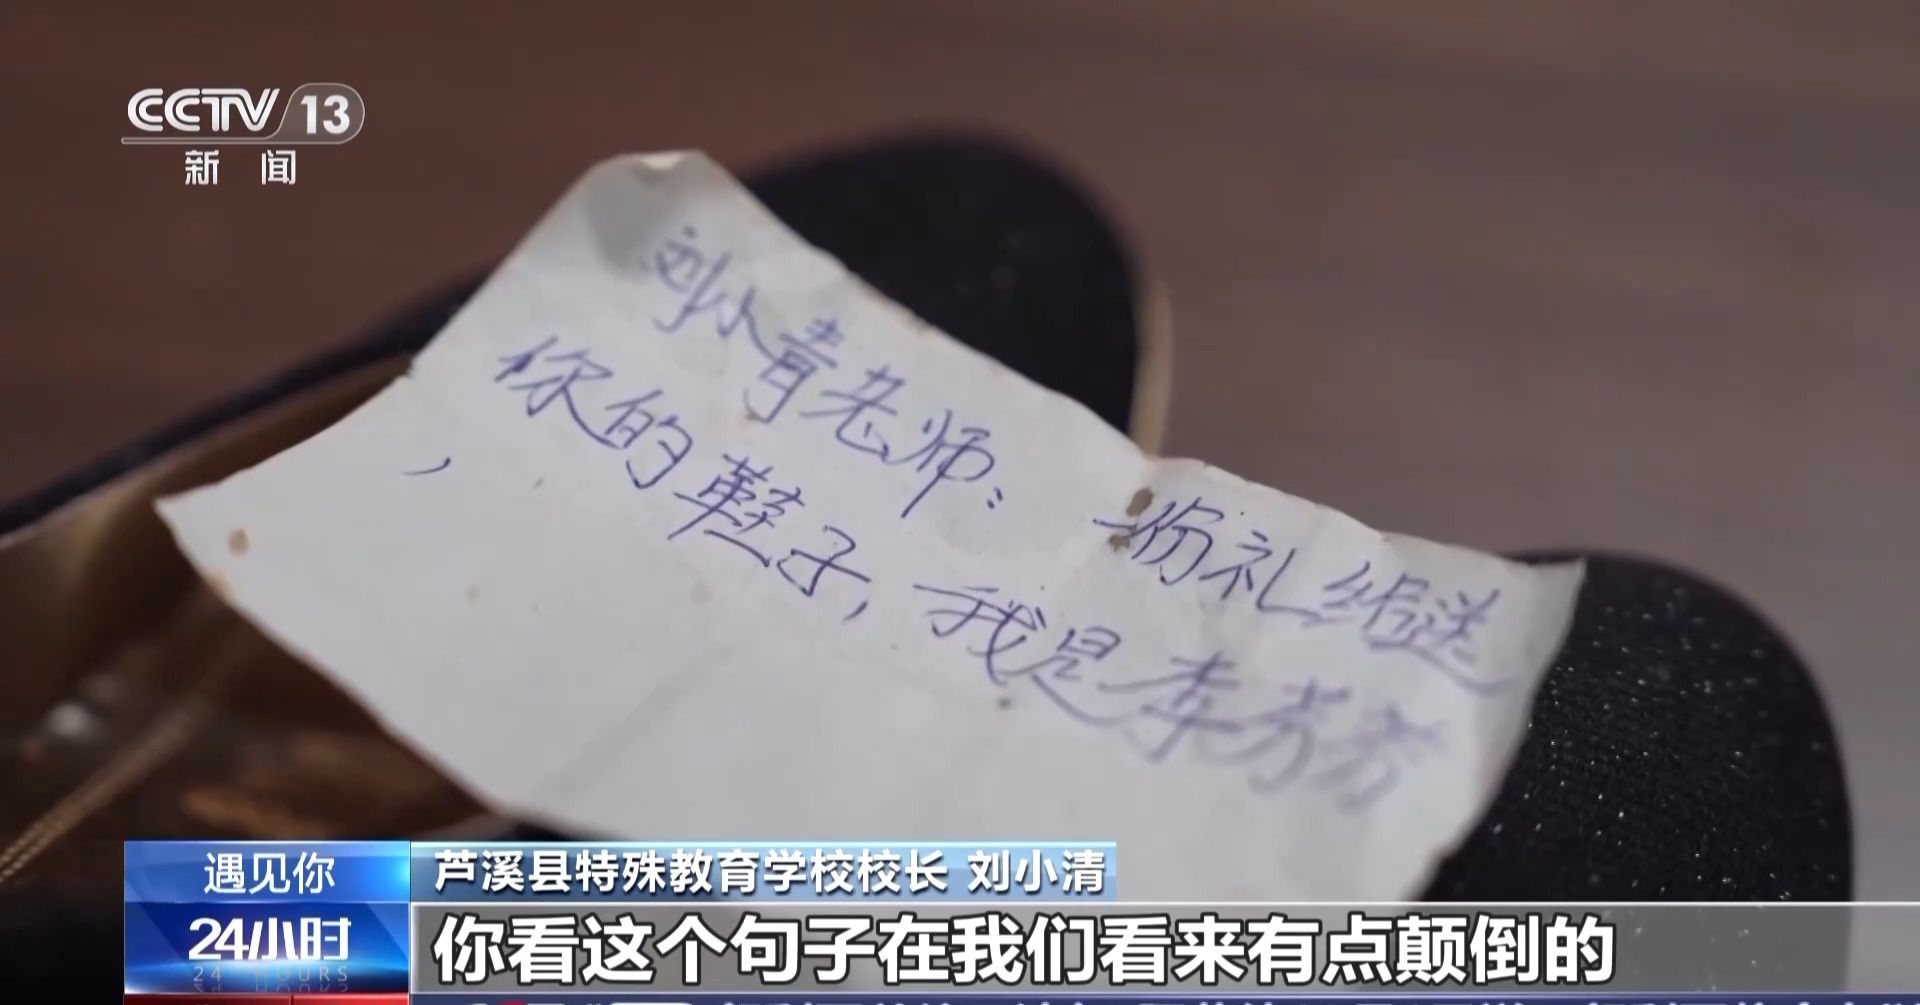 CCTV 13
新闻
刘小青老师：一份礼给送
你的鞋子，我是李芳芳
，
遇见你
芦溪县特殊教育学校校长 刘小清
24小时
24 HOURS
你看这个句子在我们看来有点颠倒的